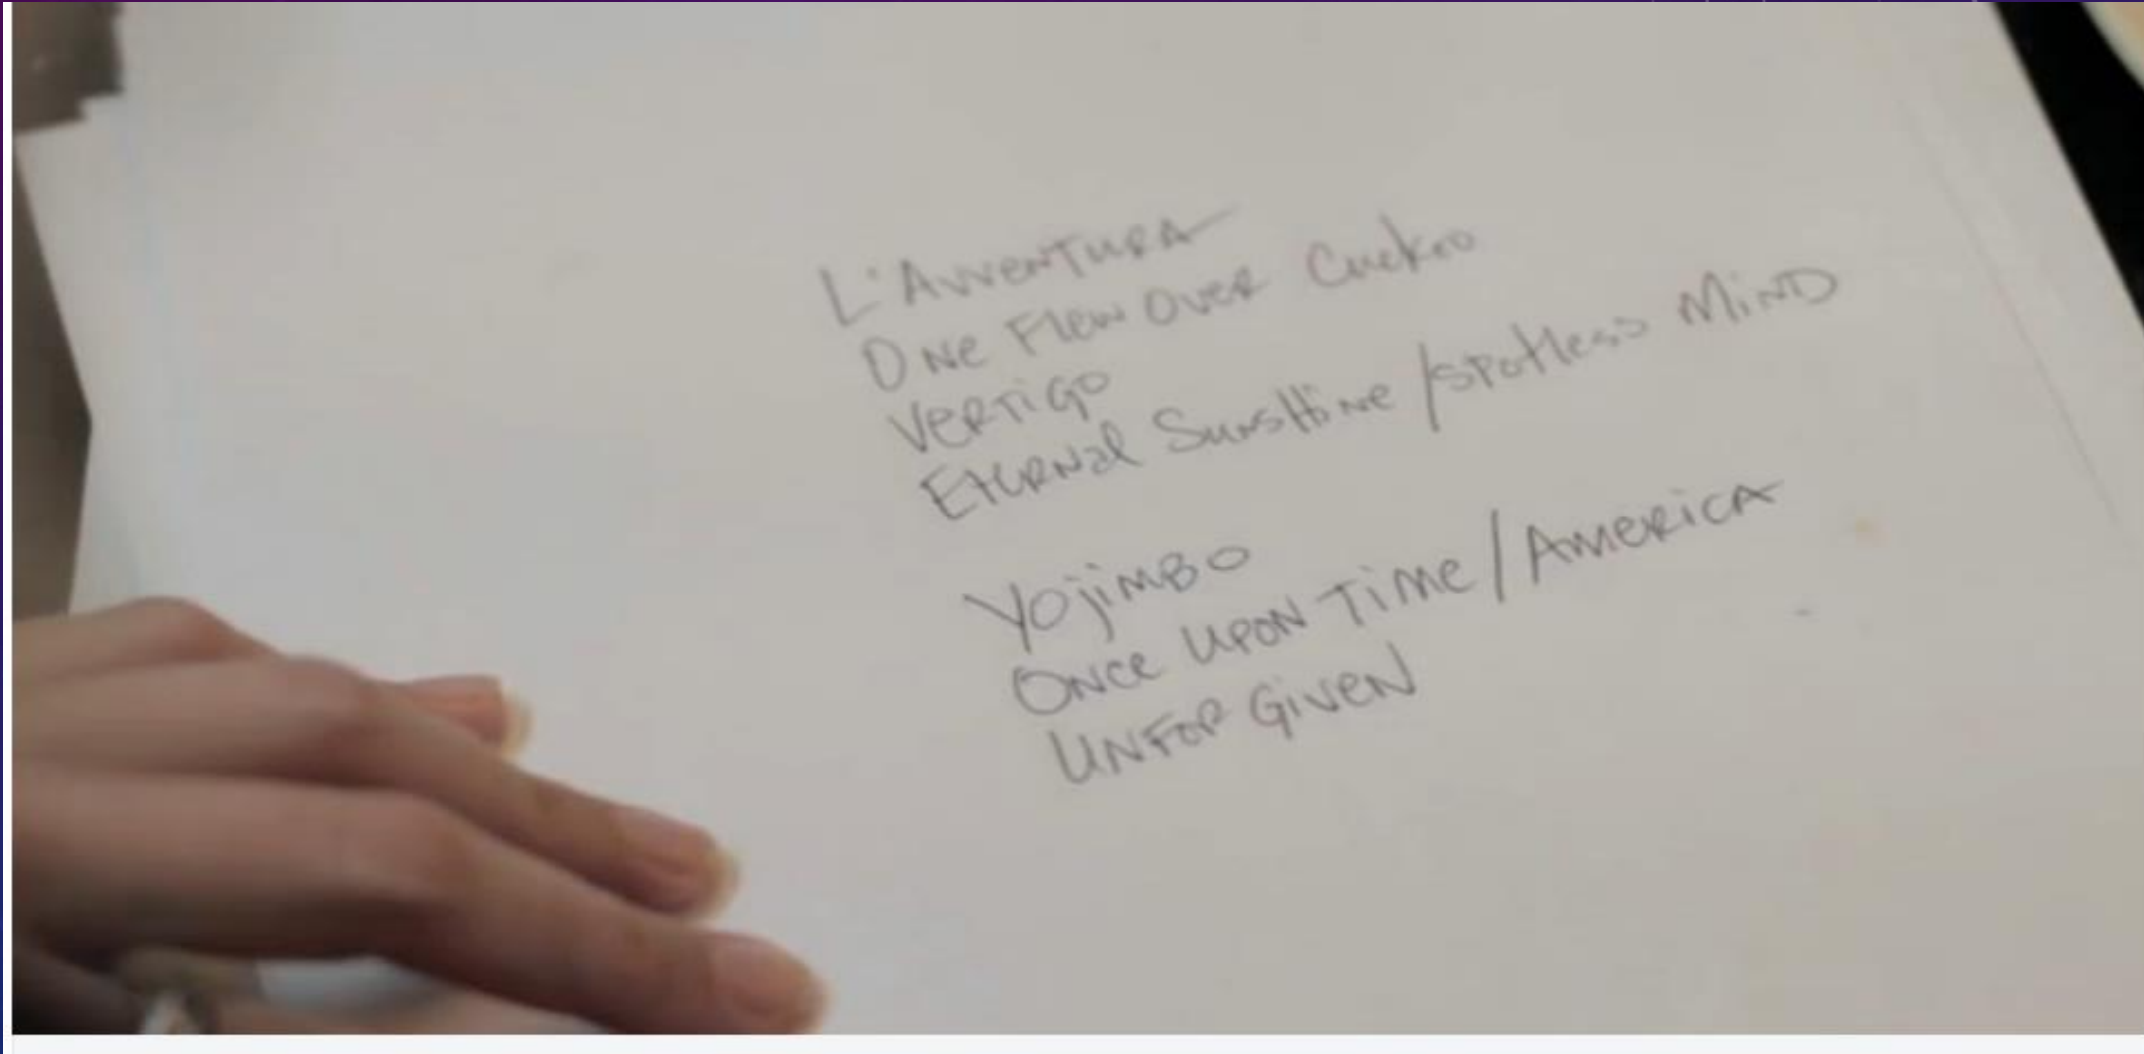 L'AVVENTURA
ONE Flew OVER Cuckoo
VERTiGO
ETERNal SunsHiNe /spotless MiND
YojiMBO
ONCE UPON TiMe / AMERiCA
UNFOR GiVEN